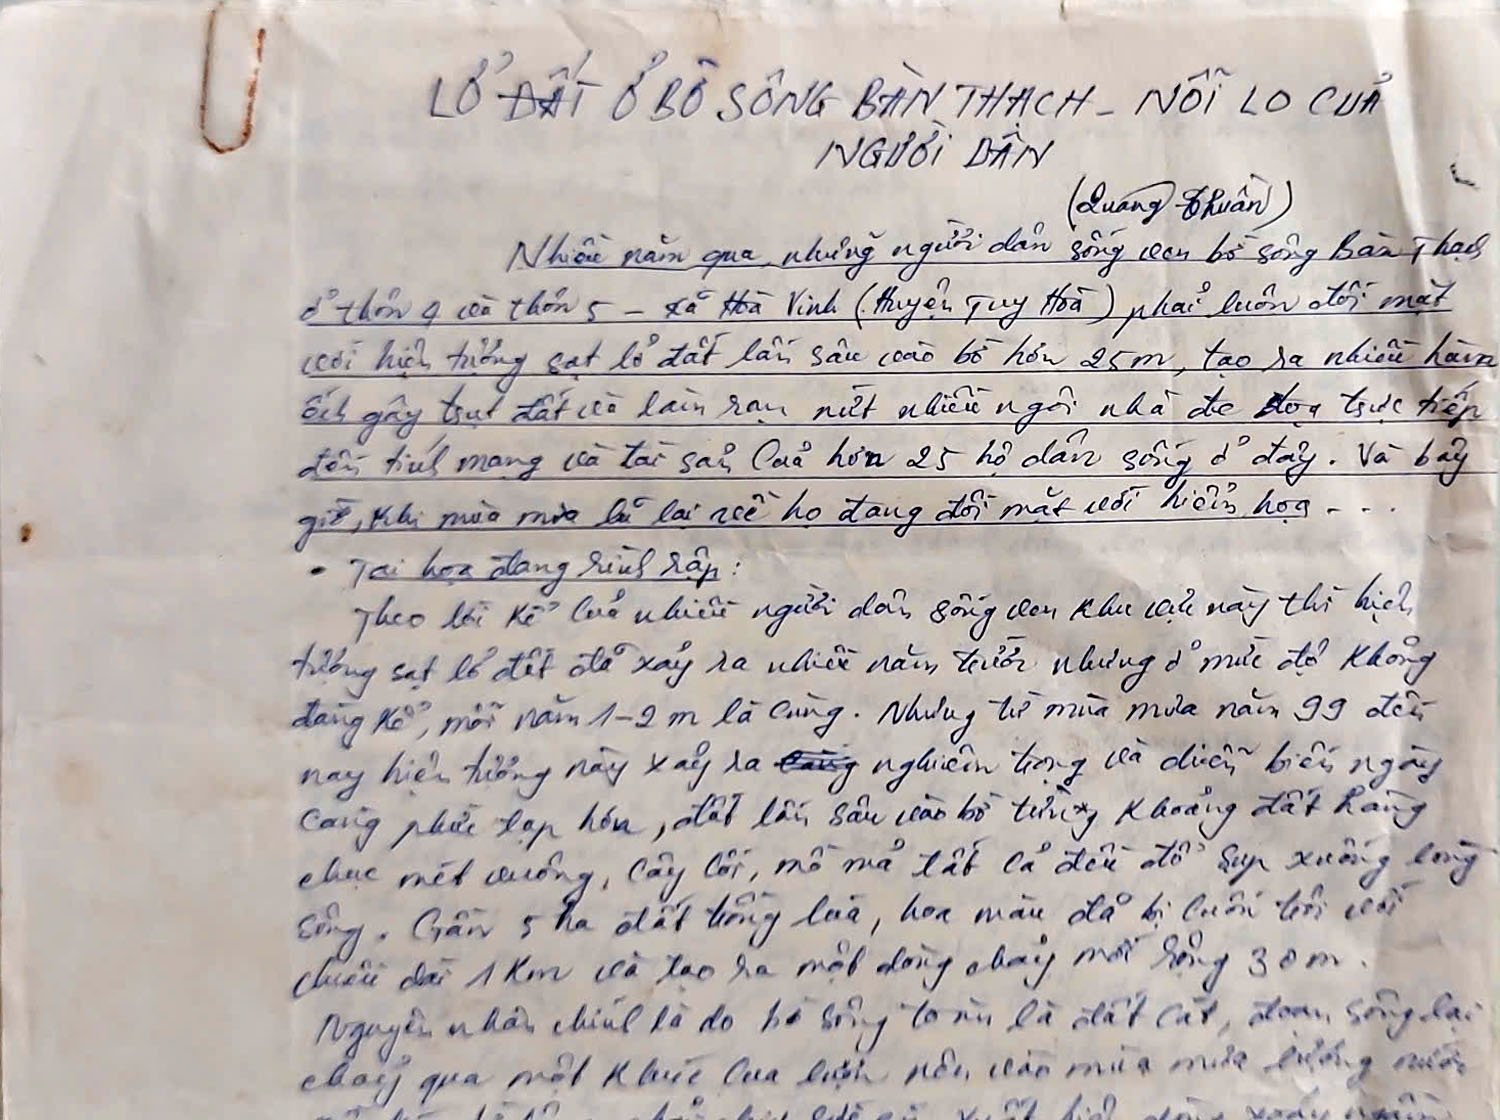 LỞ ĐẤT Ở BỜ SÔNG BÀN THẠCH - NỖI LO CỦA
NGƯỜI DÂN
(Quang Thuần)
Nhiều năm qua, những người dân sống ven bờ sông Bàn Thạch
ở thôn 4 và thôn 5 - xã Hoà Vinh (Huyện Tuy Hoà) phải luôn đối mặt
với hiện tượng sạt lở đất lấn sâu vào bờ hơn 25m, tạo ra nhiều hàm
ếch gây trụt đất và làm rạn nứt nhiều ngôi nhà đe doạ trực tiếp
đến tính mạng và tài sản của hơn 25 hộ dân sống ở đây. Và bây
giờ, khi mùa mưa lũ lại về họ đang đối mặt với hiểm hoạ...
• Tai hoạ đang rình rập:
Theo lời kể của nhiều người dân sống ven khu vực này thì hiện
tượng sạt lở đất đã xảy ra nhiều năm trước nhưng ở mức độ không
đáng kể, mỗi năm 1-2 m là cùng. Nhưng từ mùa mưa năm 99 đến
nay hiện tượng này xảy ra nghiêm trọng và diễn biến ngày
càng phức tạp hơn, đất lấn sâu vào bờ từng khoảng đất hàng
chục mét vuông, cây cối, mồ mả tất cả đều đổ sụp xuống lòng
sông. Gần 5 ha đất trồng lúa, hoa màu đã bị cuốn trôi với
chiều dài 1 Km và tạo ra một dòng chảy mới rộng 30m.
Nguyên nhân chính là do bờ sông toàn là đất cát, đoạn sông lại
chảy qua một khúc cua lượn nên vào mùa mưa lượng nước